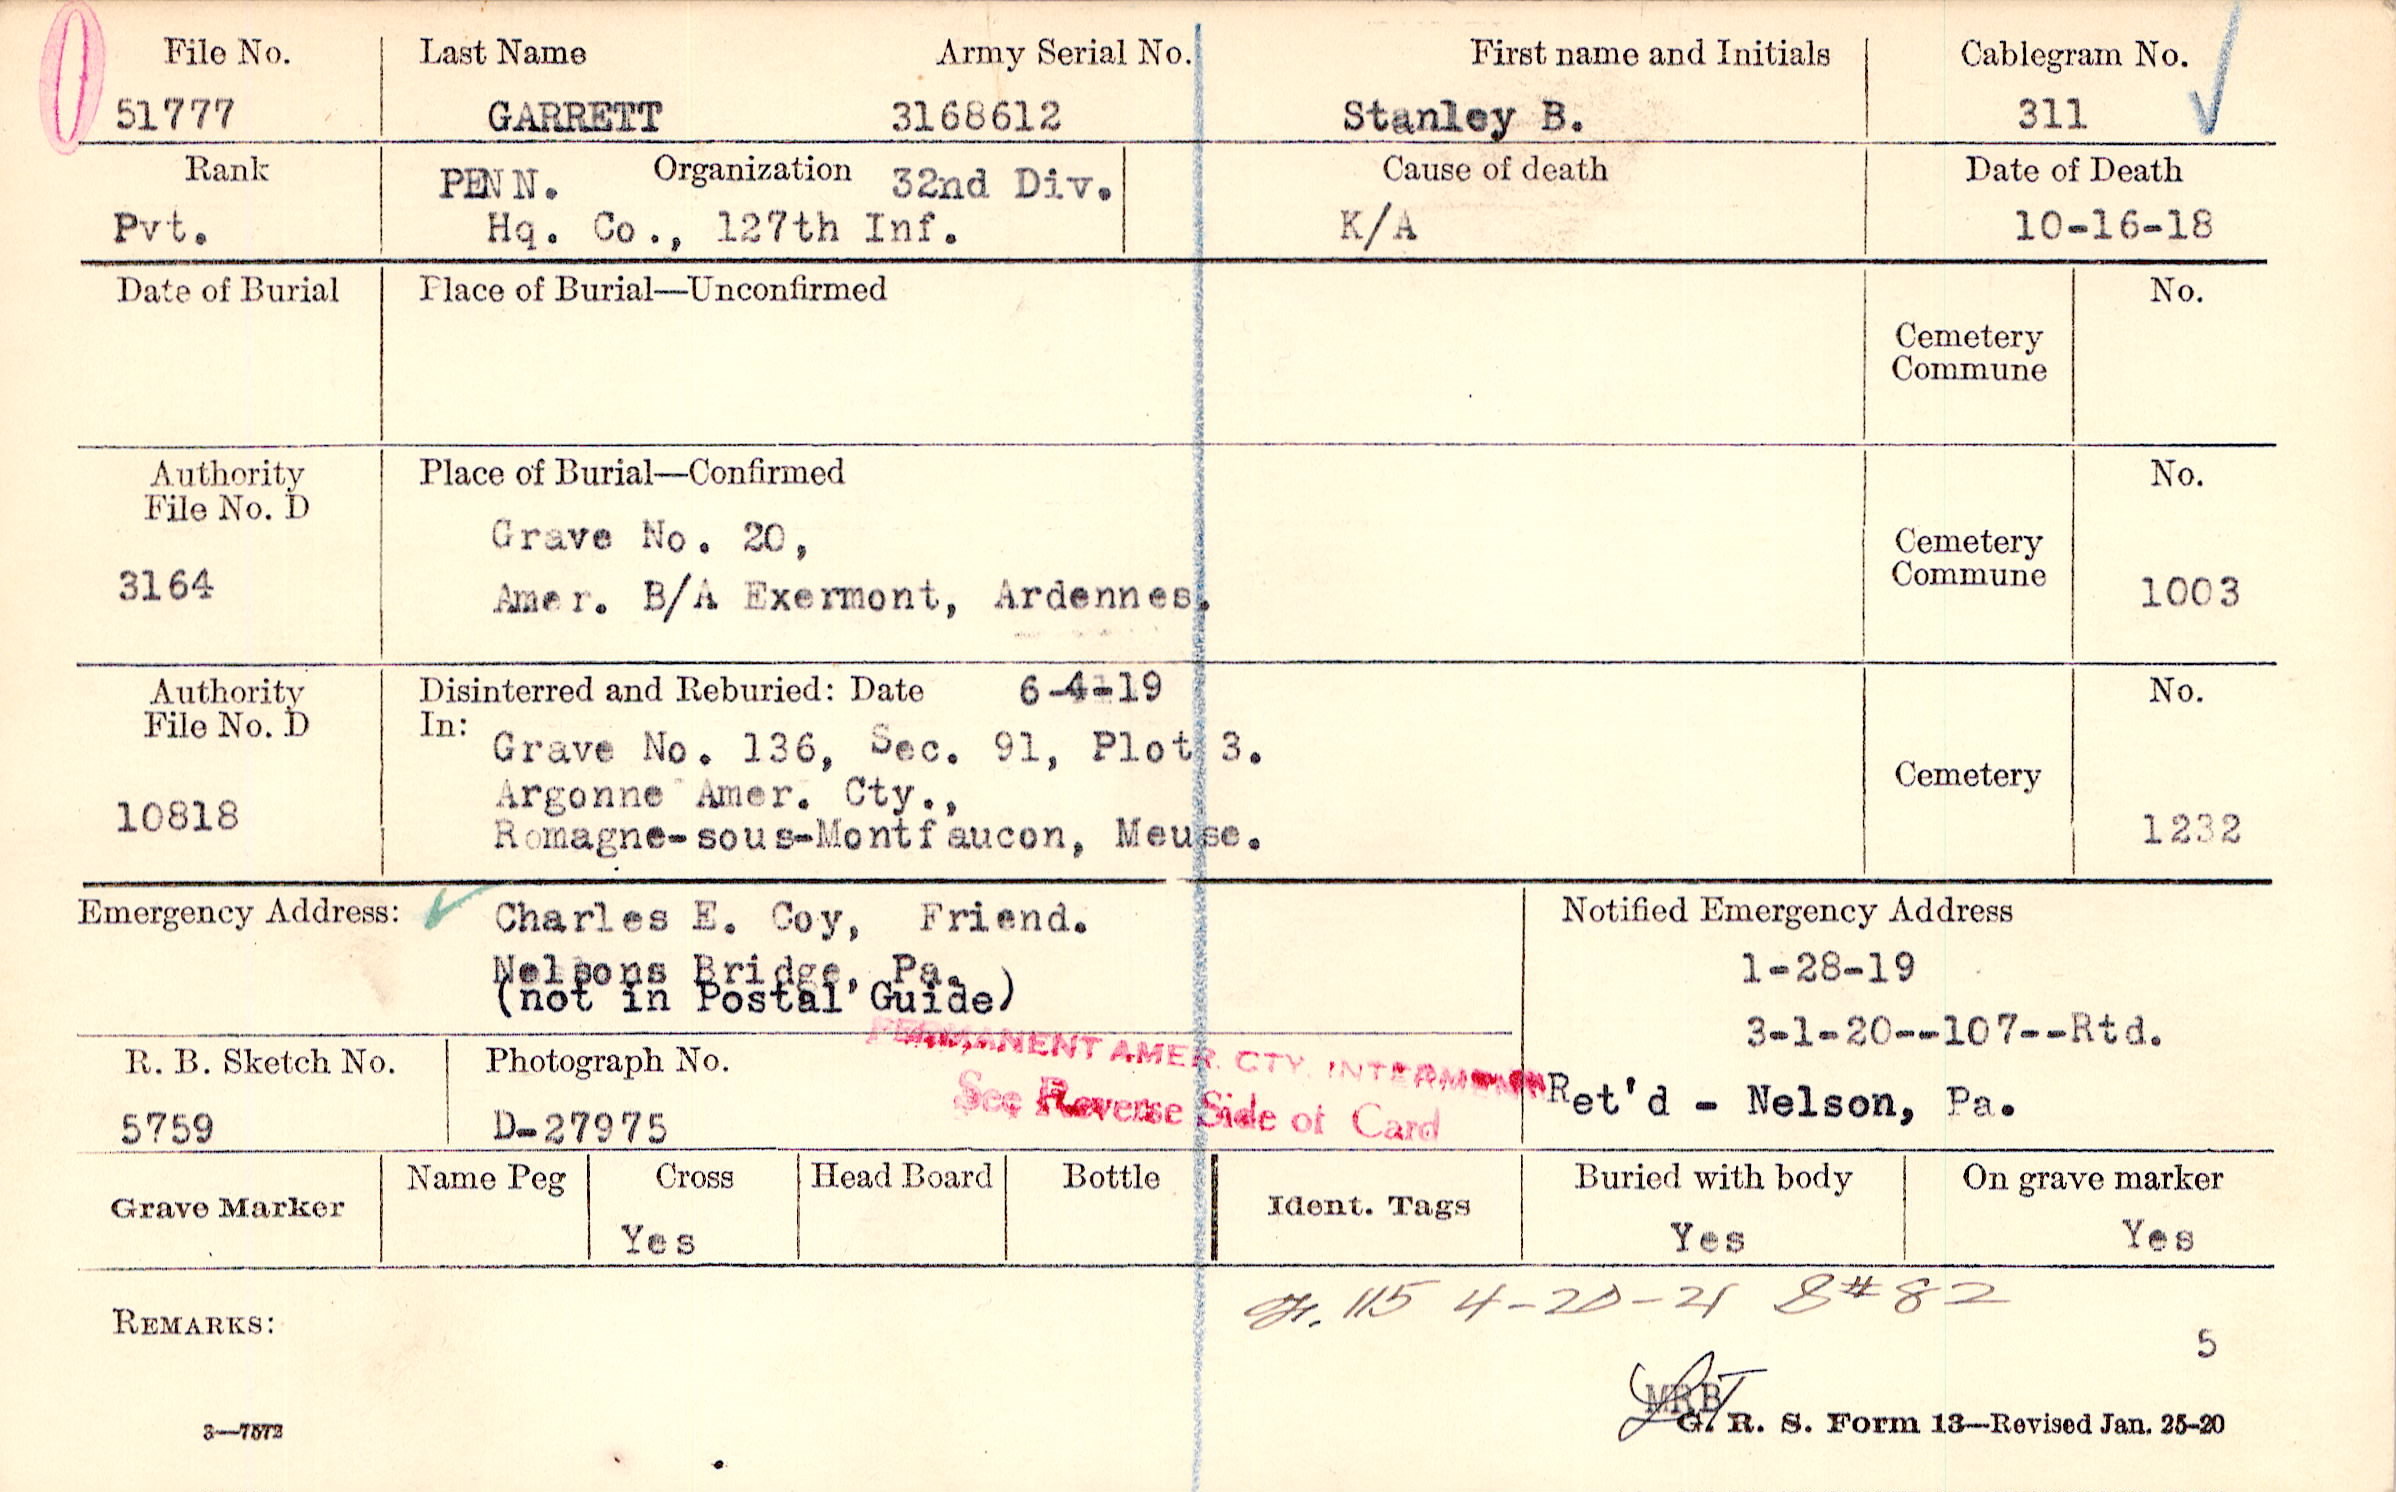 File No. Last Name Army Serial No. First name and Initials Cablegram No.
51777 GARRETT 3168612 Stanley B. 311
Rank PENN. Organization 32nd Div. Cause of death Date of Death
Pvt. Hq. Co., 127th Inf. K/A 10-16-18
Date of Burial Place of Burial—Unconfirmed No.
Cemetery
Commune
Authority Place of Burial—Confirmed No.
File No. D
Grave No. 20, Cemetery
3164 Amer. B/A Exermont, Ardennes. Commune 1003
Authority Disinterred and Reburied: Date 6-4-19 No.
File No. D In:
Grave No. 136, Sec. 91, Plot 3.
Argonne Amer. Cty., Cemetery
10818 Romagne-sous-Montfaucon, Meuse. 1232
Emergency Address: Charles E. Coy, Friend. Notified Emergency Address
Nelsons Bridge, Pa. 1-28-19
(not in Postal Guide)
3-1-20--107--Rtd.
PERMANENT AMER. CTY. INTERMENT
R. B. Sketch No. Photograph No.
See Reverse Side of Card Ret'd - Nelson, Pa.
5759 D-27975
Grave Marker Name Peg Cross Head Board Bottle Ident. Tags Buried with body On grave marker
Yes Yes Yes
115 4-20-21 8#82
REMARKS: 5
MRB
3—7572 G. R. S. Form 13—Revised Jan. 25-20